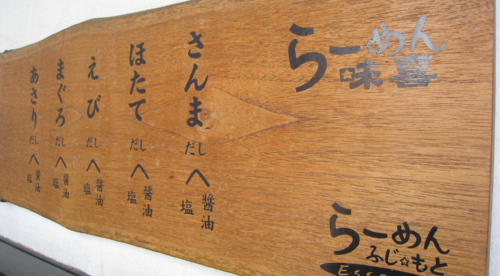 らーめん
味喜
さんまだしへ醤油
塩
ほたてだしへ醤油
塩
えびだしへ醤油
塩
まぐろだしへ醤油
塩
あさりだしへ醤油
塩
らーめん
ふじ☆もと